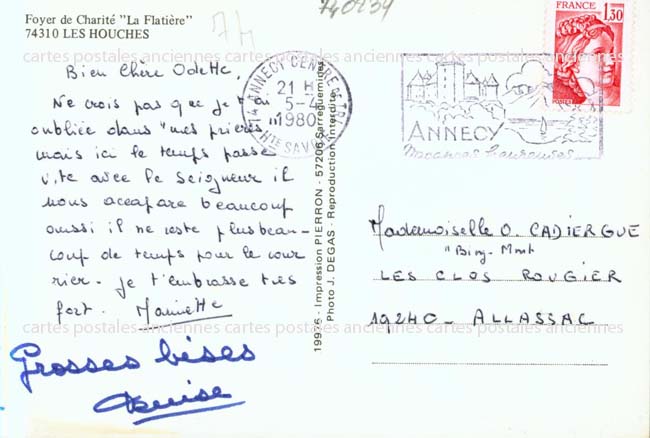 Foyer de Charité "La Flatière"
74310 LES HOUCHES
74
740234
Bien Chère Odette.
Ne crois pas que je t'ai
oubliée dans "mes prières
mais ici le temps passe
vite avec le Seigneur il
nous accapare beaucoup
aussi il ne reste plus beau-
coup de temps pour le cour
rier. je t'embrasse très
fort. Mariette
Grosses bises
Denise
19976 - Impression PIERRON - 57206 Sarreguemines
Photo J. DEGAS - Reproduction Interdite
74 ANNECY CENTRE DE TRI
21 H
5-4
1980
HTE SAVOIE
ANNECY
FRANCE
1,30
POSTES
Mademoiselle O. CADIERGUE
LES CLOS ROUGIER
19240 - ALLASSAC
cartes postales anciennes cartes postales anciennes cartes postales anciennes
cartes postales anciennes cartes postales anciennes cartes postales anciennes